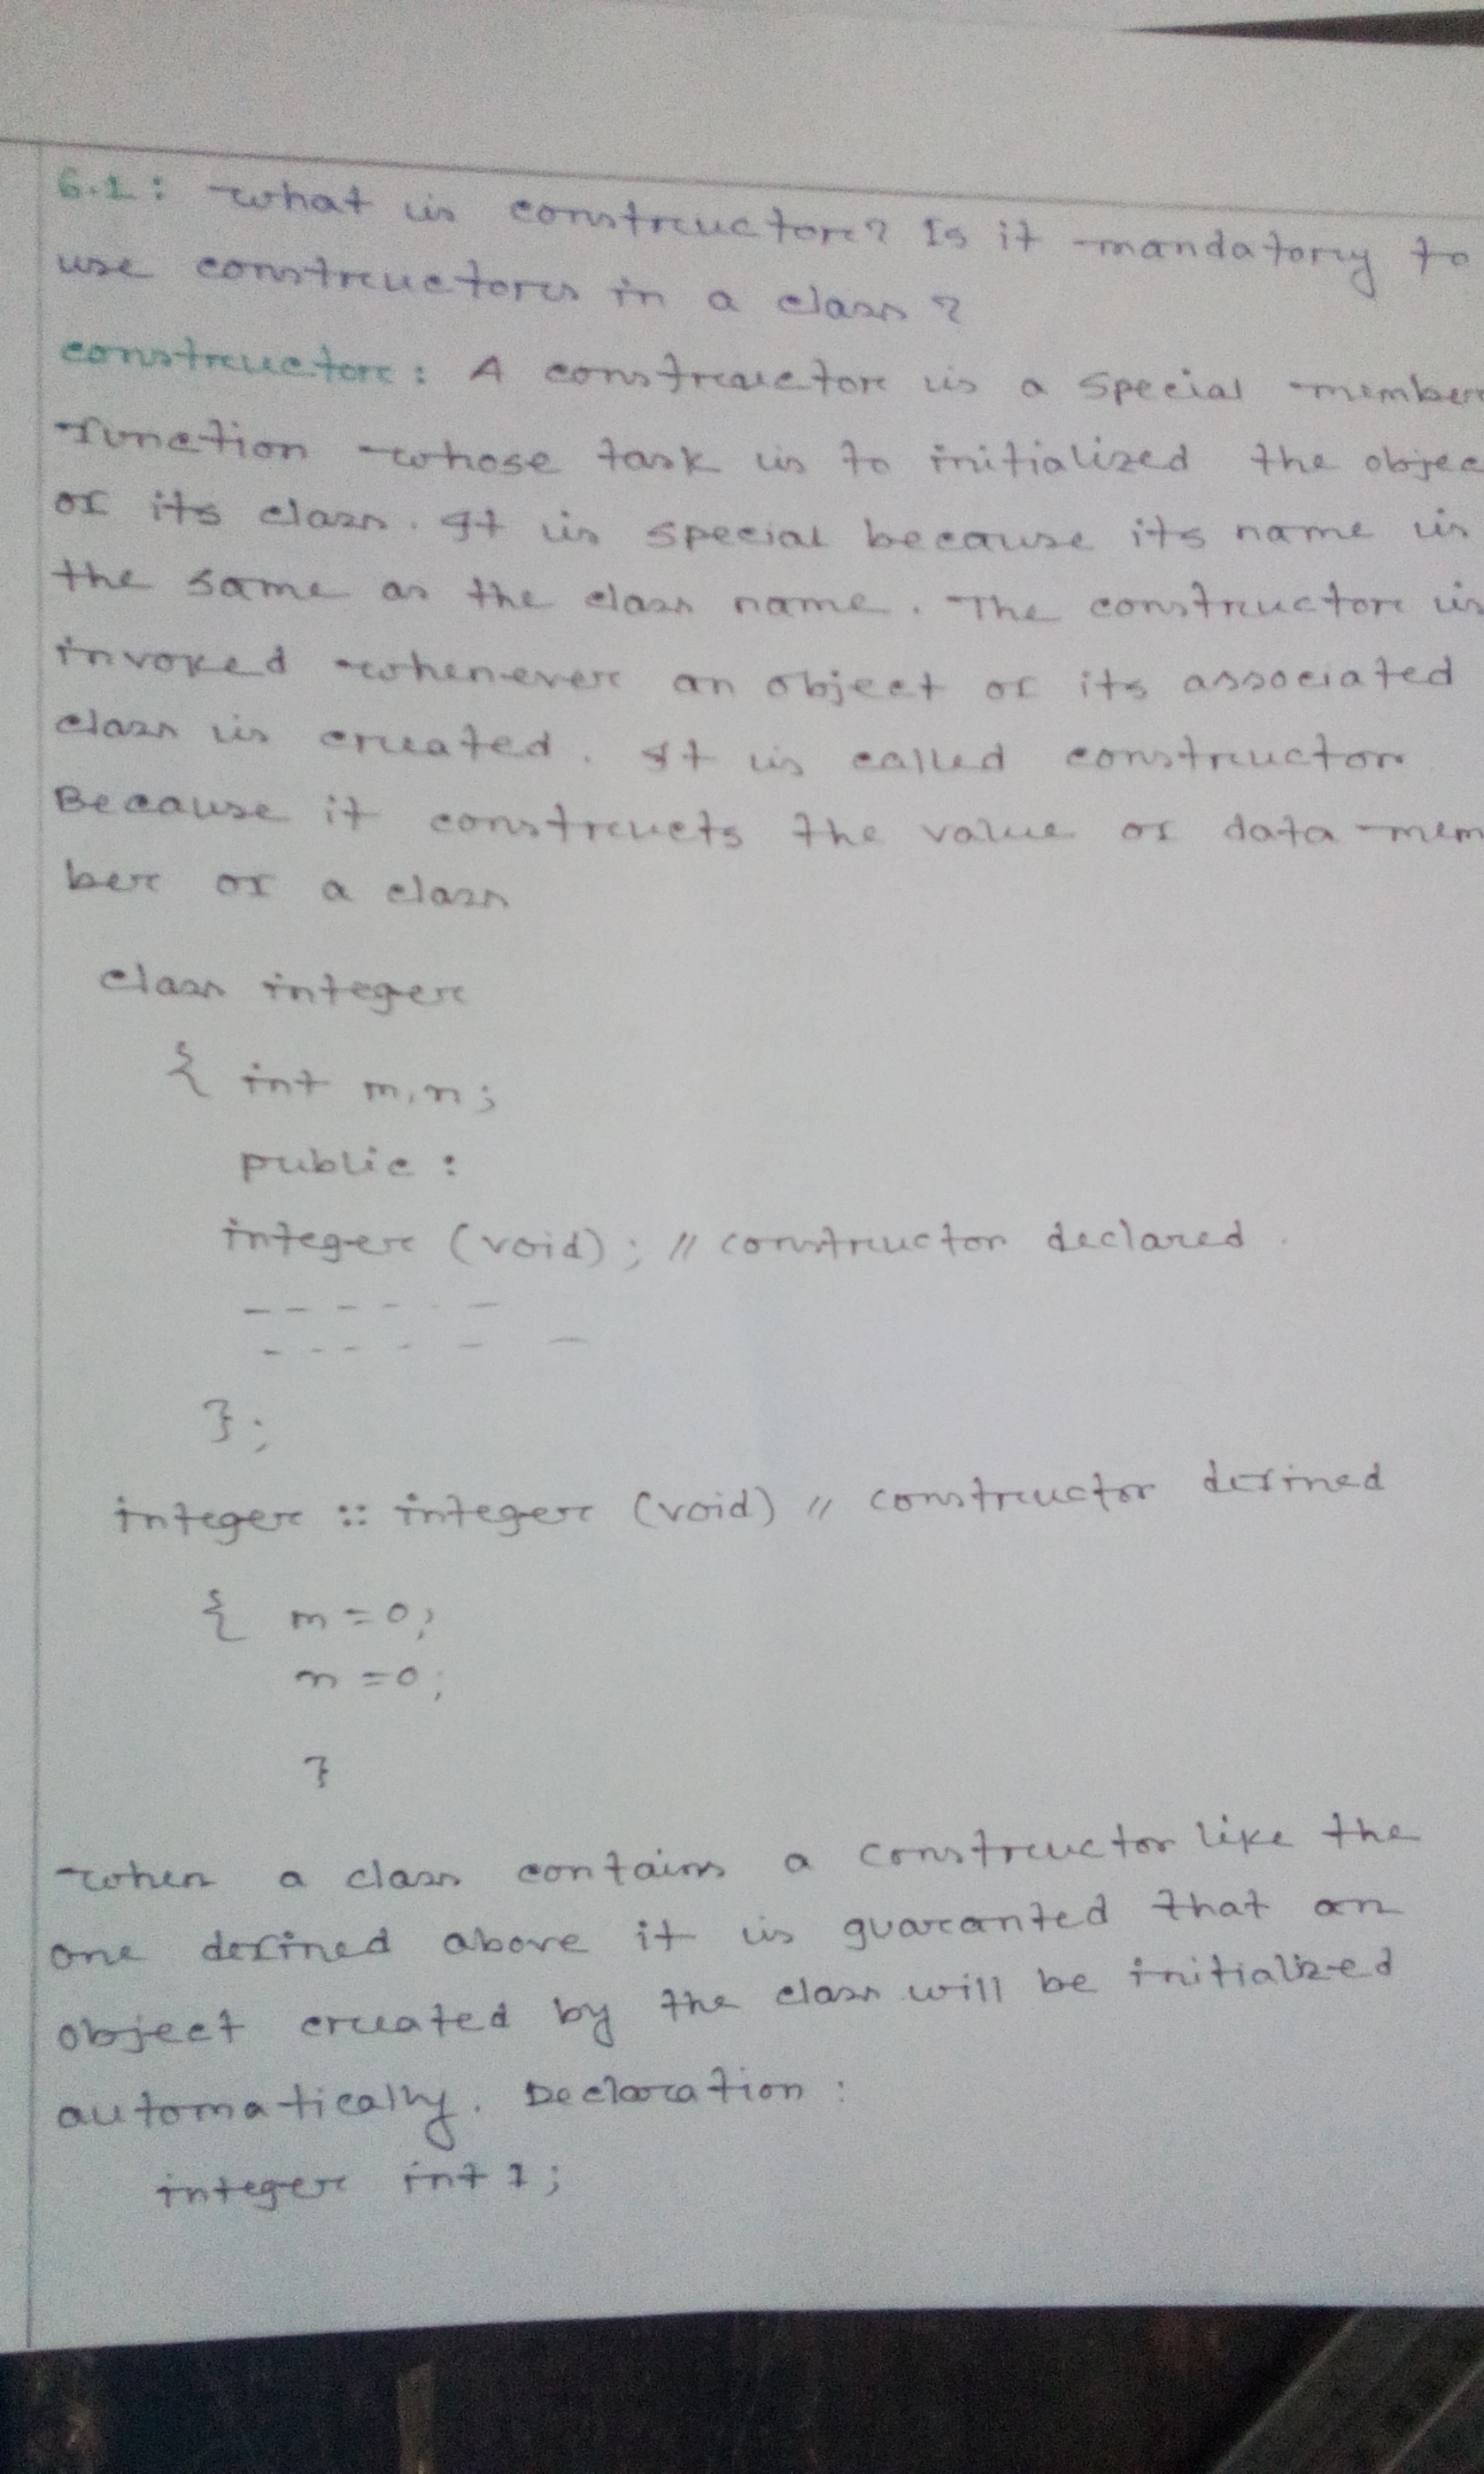 6.1: What is constructor? Is it mandatory to
use constructors in a class?
constructor: A constructor is a special member
function whose task is to initialized the objec
of its class. It is special because its name is
the same as the class name. The constructor is
invoked whenever an object of its associated
class is created. It is called constructor
Because it constructs the value of data mem
ber of a class
class integer
{ int m,n;
public:
integer (void); // constructor declared.
- - - - - -
- - - - - -
};
integer :: integer (void) // constructor defined
{ m=0;
n=0;
}
When a class contains a constructor like the
one defined above it is guaranted that an
object created by the class will be initialized
automatically. Declaration:
integer int 1;